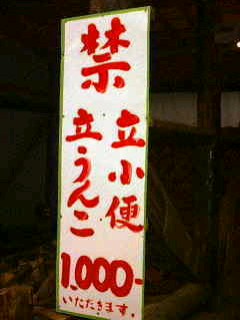 禁
立小便
立うんこ
1,000-
いただきます。